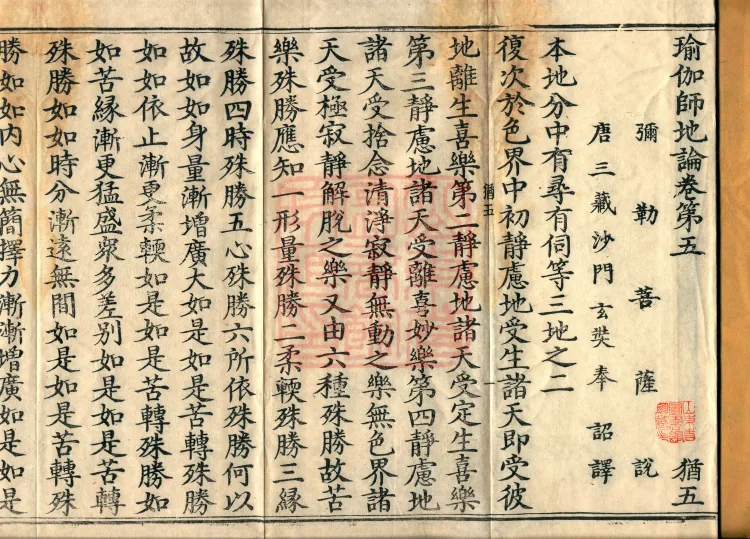 瑜伽師地論卷第五 猶五
彌勒菩薩說
唐三藏沙門玄奘奉 詔譯
本地分中有尋有伺等三地之二
復次於色界中初靜慮地受生諸天即受彼
猶五 一
地離生喜樂第二靜慮地諸天受定生喜樂
第三靜慮地諸天受離喜妙樂第四靜慮地
諸天受捨念清淨寂靜無動之樂無色界諸
天受極寂靜解脫之樂又由六種殊勝故苦
樂殊勝應知一形量殊勝二柔輭殊勝三緣
殊勝四時殊勝五心殊勝六所依殊勝何以
故如如身量漸增廣大如是如是苦轉殊勝
如如依止漸更柔輭如是如是苦轉殊勝如
如苦緣漸更猛盛眾多差別如是如是苦轉
殊勝如如時分漸遠無間如是如是苦轉殊
勝如如內心無簡擇力漸漸增廣如是如是